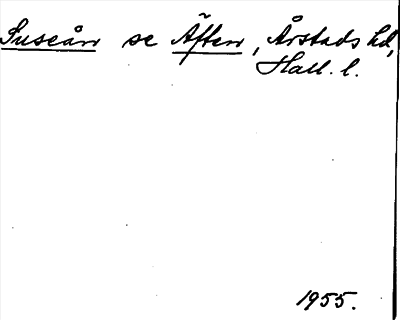 Suseån se Äften, Årstads hd,
Hall. l.
1955.